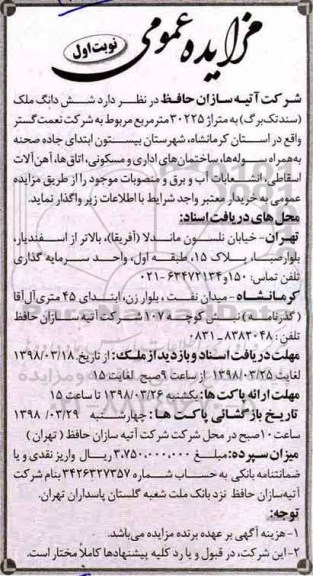 مزایده عمومی
نوبت اول
شرکت آتیه سازان حافظ در نظر دارد شش دانگ ملک
(سند تک برگ) به متراژ ۳۰۲۲۵ مترمربع مربوط به شرکت نعمت گستر
واقع در استان کرمانشاه، شهرستان بیستون ابتدای جاده صحنه
به همراه سوله‌ها، ساختمان‌های اداری و مسکونی، اتاق‌ها، آهن آلات
اسقاطی، انشعابات آب و برق و منصوبات موجود را از طریق مزایده
عمومی به خریدار معتبر واجد شرایط با اطلاعات زیر واگذار نماید.
محل های دریافت اسناد:
تهران- خیابان نلسون ماندلا (آفریقا)، بالاتر از اسفندیار،
بلوار صبا، پلاک ۱۵، طبقه اول، واحد سرمایه گذاری
تلفن تماس: ۱۵۰و۶۳۴۷۳۱۳۴-۰۲۱
کرمانشاه- میدان نفت، بلوار زن، ابتدای ۴۵ متری آل آقا
(گذرنامه) نبش کوچه ۱۰۷ شرکت آتیه سازان حافظ
تلفن: ۸۳۸۲۰۴۸-۰۸۳۱
مهلت دریافت اسناد و بازدید از ملک: از تاریخ ۱۳۹۸/۰۳/۱۸
لغایت ۱۳۹۸/۰۳/۲۵ از ساعت ۹صبح لغایت ۱۵
مهلت ارائه پاکت ها: یکشنبه ۱۳۹۸/۰۳/۲۶ تا ساعت ۱۵
تاریخ بازگشائی پاکت ها: چهارشنبه ۱۳۹۸ /۰۳/۲۹
ساعت ۱۰صبح در محل شرکت شرکت آتیه سازان حافظ (تهران)
میزان سپرده: مبلغ ۳,۷۵۰,۰۰۰,۰۰۰ ریال واریز نقدی و یا
ضمانتنامه بانکی به حساب شماره ۳۴۲۶۳۲۷۳۵۷ بنام شرکت
آتیه‌سازان حافظ نزد بانک ملت شعبه گلستان پاسداران تهران.
توجه:
۱-هزینه آگهی بر عهده برنده مزایده می‌باشد.
۲-این شرکت، در قبول و یا رد کلیه پیشنهادها کاملاً مختار است.